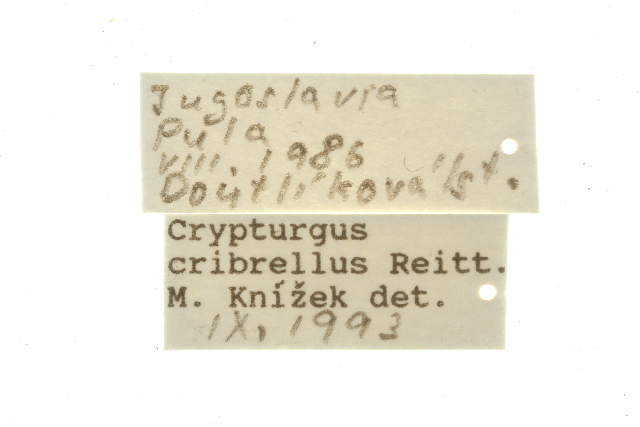 Jugoslavia
Pula
VIII 1986
lgt.
Crypturgus
cribrellus Reitt.
M. Knížek det.
IX, 1993